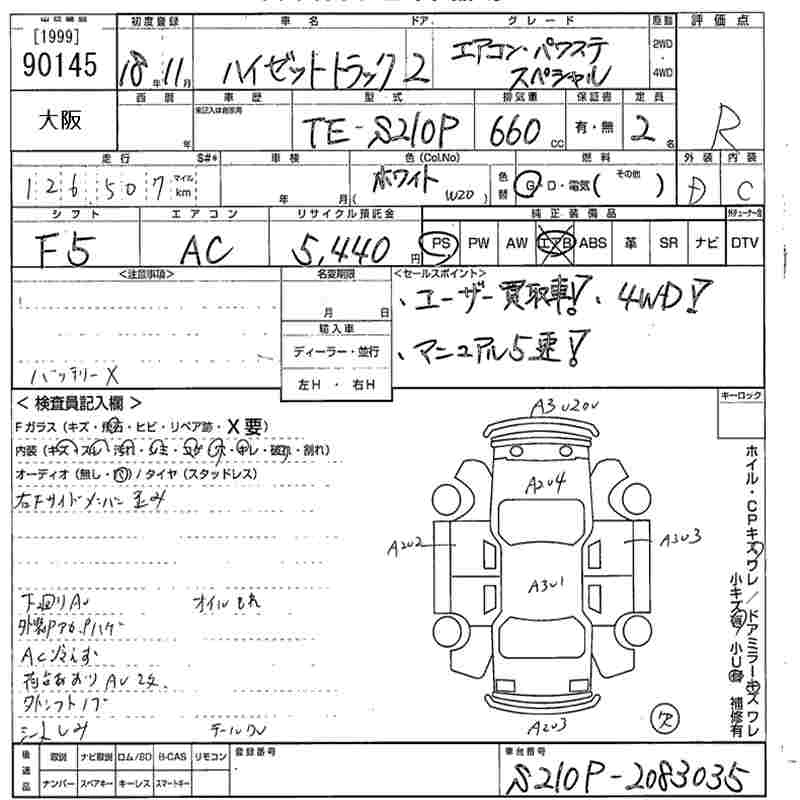 [1999]
90145
大阪
初度登録 車名 ドア グレード 原動 評価点
18年 11月 ハイゼットトラック 2 エアコン・パワステ スペシャル 2WD・4WD R
西暦 車歴 型式 排気量 保証書 定員
年 TE-S210P 660cc 有・無 2名
走行 S#* 車検 色(Col.No) 燃料 外装 内装
126,507 マイル km 年 月 ホワイト (W20) 色替 G・D・電気( その他 ) D C
シフト エアコン リサイクル預託金 純正装備品
F5 AC 5,440円 PS PW AW エアB ABS 革 SR ナビ DTV
<注意事項> 名変期限 <セールスポイント>
月 日
輸入車
ディーラー・並行
左H・右H
、ユーザー買取車!、4WD!
、マニュアル5速!
バッテリーX
<検査員記入欄>
キーロック
Fガラス(キズ・飛石・ヒビ・リペア跡・X要)
内装(キズ・スレ・汚れ・シミ・コゲ・穴・キレ・破れ・割れ)
オーディオ(無し・不)/タイヤ(スタッドレス)
右Fサイドメンバー歪み
下回りAU オイルもれ
AC冷えず
シートしみ テールワレ
A3 U20U
A2U4
A2U2
A3U3
A3U1
A2U3
欠
ホイル・CPキズワレ/ドアミラーキズワレ
小キズ有/小U有 補修有
後送品 取説 ナビ取説 ロム/SD B-CAS リモコン 登録番号 車台番号
ナンバー スペアキー キーレス スマートキー S210P-2083035